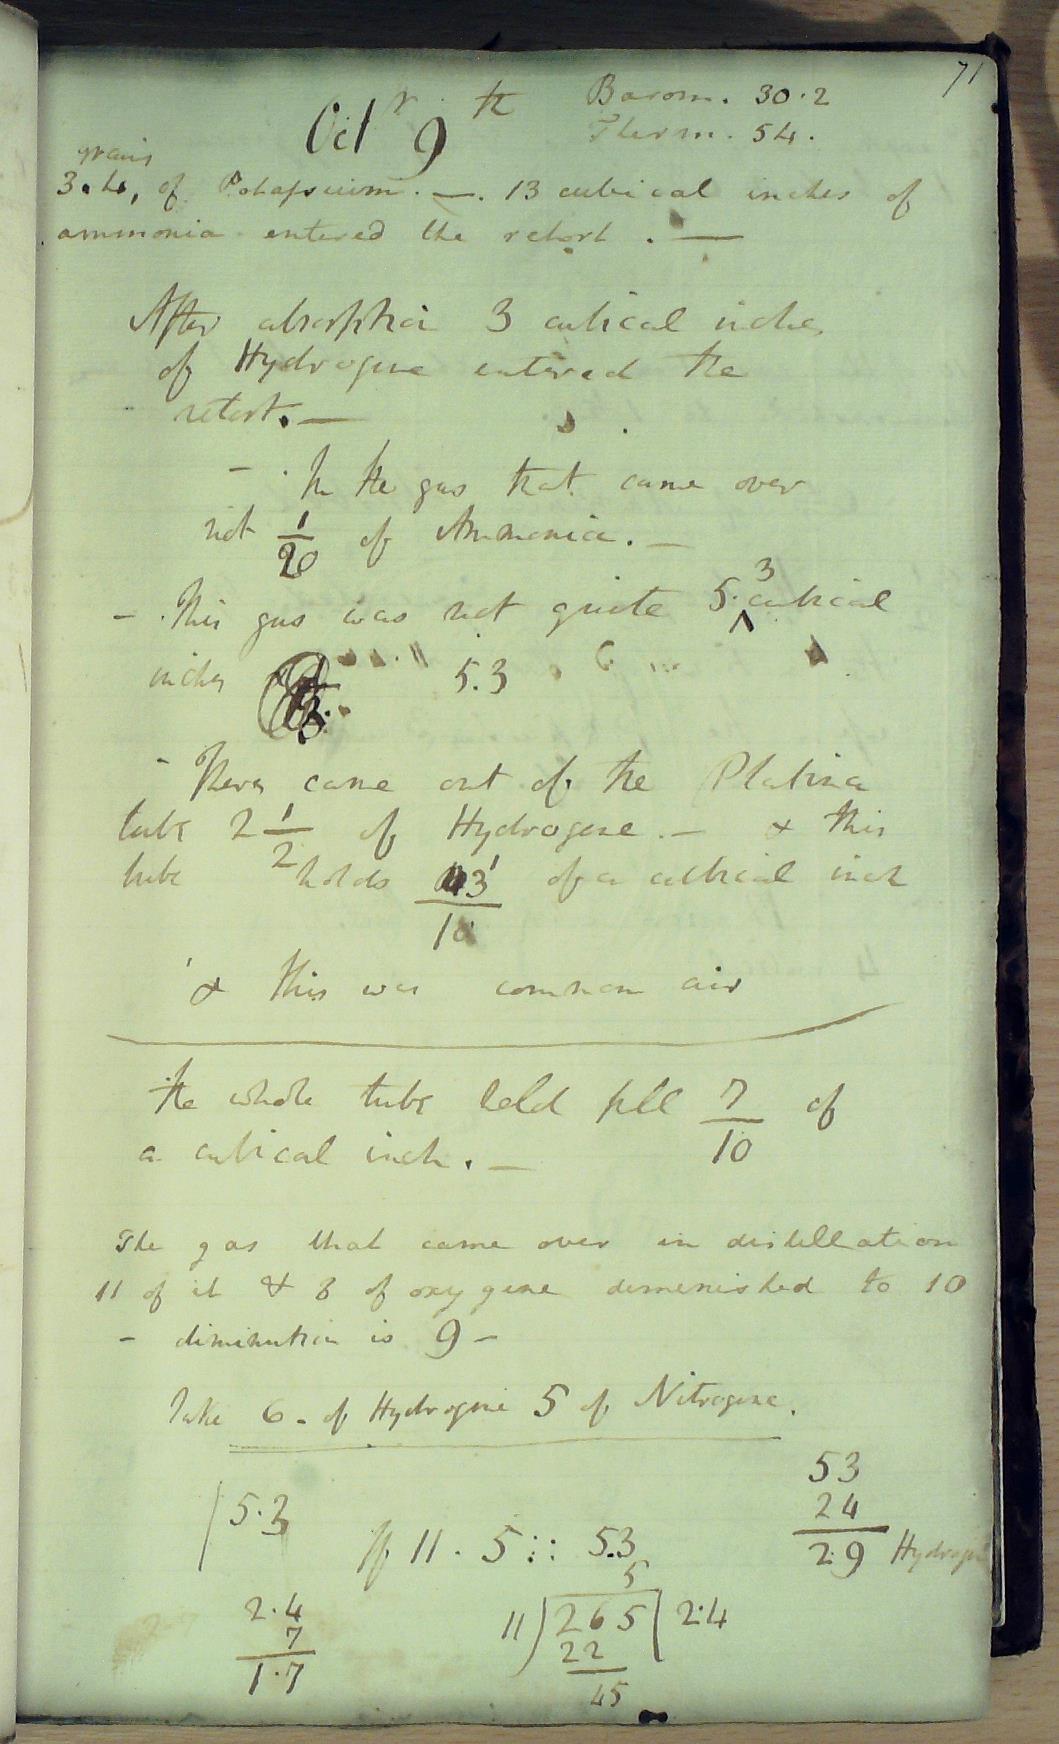 71
Octr 9th Barom. 30.2
Therm. 54.
grains
of Potassium. —. 13 cubical inches of
ammonia entered the retort. —
After absorption 3 cubical inches
of Hydrogene entered the
retort. —
— In the gas that came over
not 1/20 of Ammonia. —
— This gas was not quite 5.3 cubical
inches 5.3
- There came out of the Platina
tube 2 1/2 of Hydrogene. — & this
tube holds /10 of a cubical inch
& this was common air
The whole tube held full 7/10 of
a cubical inch. —
The gas that came over in distillation
11 of it & 8 of oxygene diminished to 10
— diminution is 9 —
Take 6 - of Hydrogene 5 of Nitrogene.
5.3
53
24
29 Hydrogen
If 11 . 5 :: 5.3
5
2.4
7
1.7
11) 265 ( 2.4
22
45